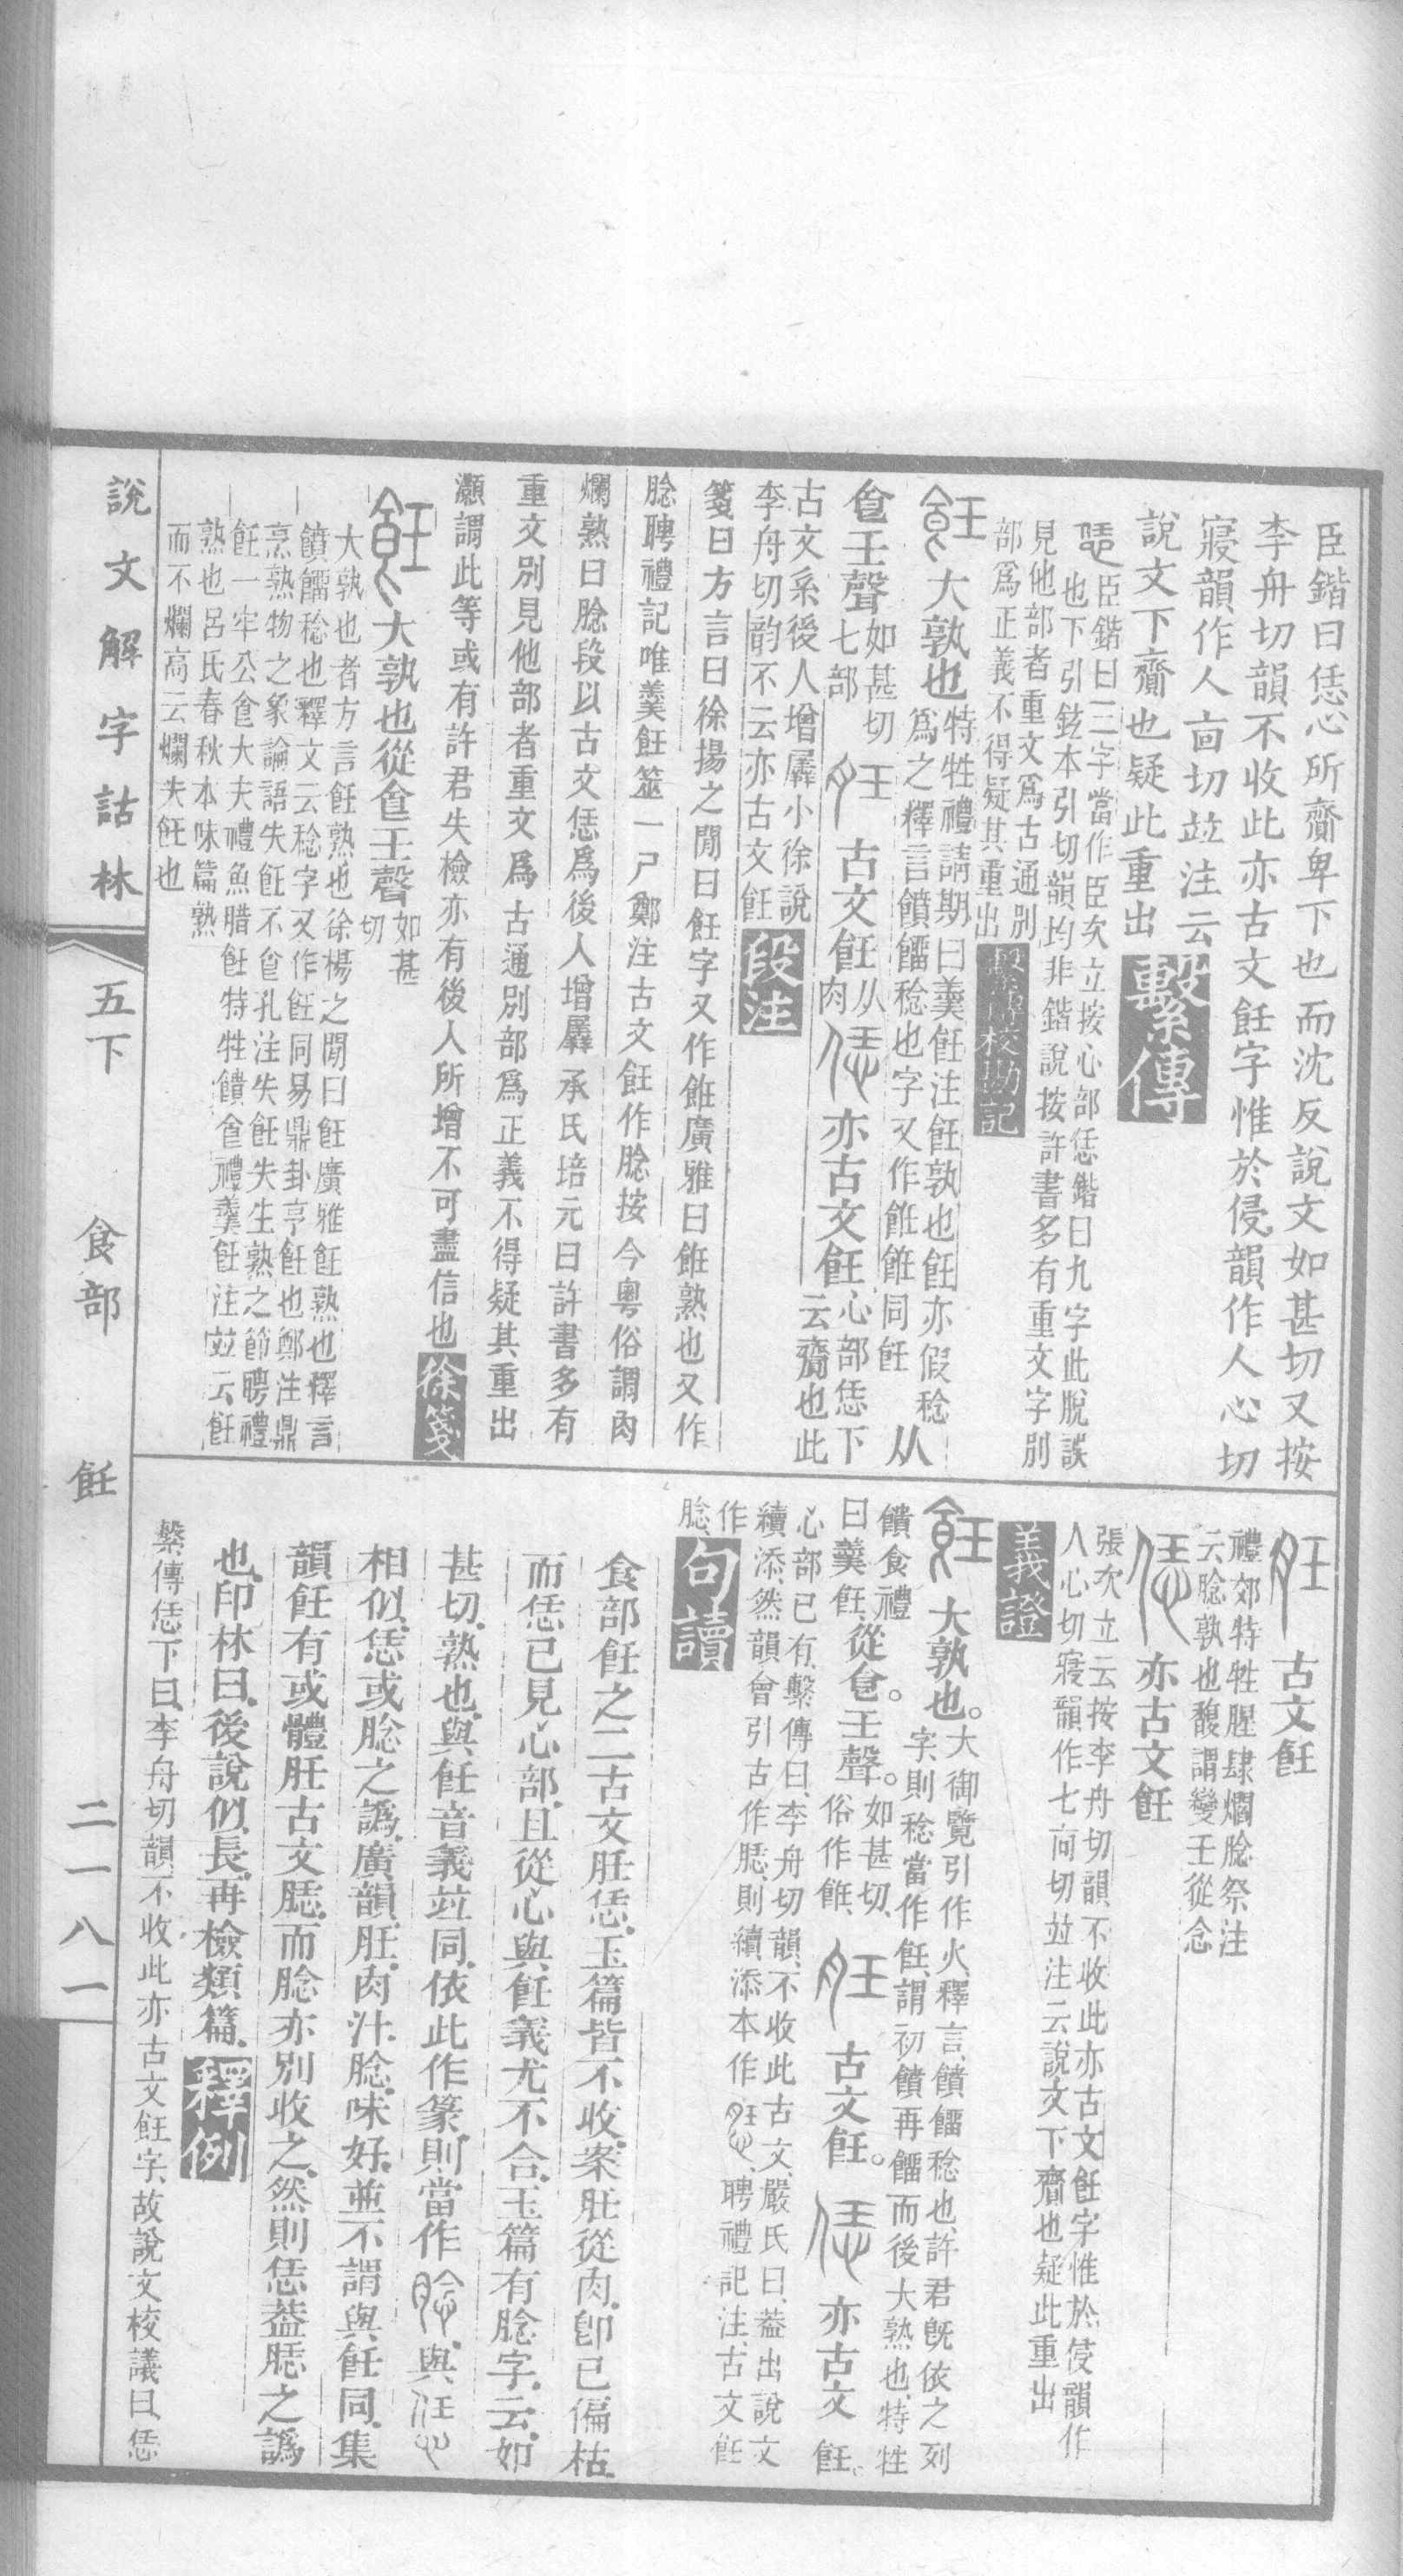 臣鍇曰恁心所齎卑下也而沈反說文如甚切又按
李舟切韻不收此亦古文飪字惟於侵韻作人心切
寢韻作人亩切竝注云
說文下齎也疑此重出
繫傳
恁
臣鍇曰三字當作臣次立按心部恁鍇曰九字此脫誤
也下引鉉本引切韻均非鍇說按許書多有重文字別
見他部者重文爲古通別
部爲正義不得疑其重出
繫傳校勘記
飪大孰也
特牲禮請期曰羹飪注飪孰也飪亦假稔
爲之釋言饙餾稔也字又作餁餁同飪
从
𠊊壬聲
如甚切
七部
𦚮古文飪
从
肉
恁亦古文飪
心部恁下
云齎也此
古文系後人增羼小徐說
李舟切韵不云亦古文飪
段注
箋曰方言曰徐揚之閒曰飪字又作餁廣雅曰餁熟也又作
腍聘禮記唯羹飪筮一尸鄭注古文飪作腍按今粵俗謂肉
爛熟曰腍段以古文恁爲後人增羼承氏培元曰許書多有
重文別見他部者重文爲古通別部爲正義不得疑其重出
灝謂此等或有許君失檢亦有後人所增不可盡信也
徐箋
飪大孰也從食壬聲
如甚
切
大孰也者方言飪熟也徐楊之閒曰飪廣雅飪熟也釋言
饙餾稔也釋文云稔字又作飪同易鼎卦亨飪也鄭注鼎
烹熟物之象論語失飪不食孔注失飪失生熟之節聘禮
飪一牢公食大夫禮魚腊飪特牲饋食禮羹飪注竝云飪
熟也呂氏春秋本味篇熟
而不爛高云爛失飪也
𦚮古文飪
禮郊特牲腥肆爓腍祭注
云腍孰也馥謂變壬從念
恁亦古文飪
張次立云按李舟切韻不收此亦古文飪字惟於侵韻作
人心切寢韻作七向切竝注云說文下齎也疑此重出
義證
飪大孰也。
大御覽引作火、釋言、饙餾稔也、許君旣依之列
字、則稔當作飪、謂初饙再餾而後大熟也、特牲
饋食禮
曰羹飪、
從食。壬聲。
如甚切、
俗作餁、
𦚮古文飪。恁亦古文飪、
心部已有、繫傳曰、李舟切韻、不收此古文、嚴氏曰、蓋出說文
續添、然韻會引古作𢛢、則續添本作𢛢、聘禮記注、古文飪
作
腍、
句讀
食部飪之二古文𦚮恁、玉篇皆不收、案𦚮從肉、卽已偏枯、
而恁已見心部、且從心、與飪義尤不合、玉篇有腍字、云、如
甚切、熟也、與飪音義竝同、依此作篆、則當作腍、與恁
相似、恁或腍之譌、廣韻、𦚮、肉汁、腍、味好、並不謂與飪同、集
韻飪有或體𦚮古文𢛢、而腍亦別收之、然則恁蓋𢛢之譌
也、印林曰、後說似長、再檢類篇、
釋例
繫傳恁下曰、李舟切韻、不收此亦古文飪字、故說文校議曰、恁
說文解字詁林 五下 食部 飪 二一八一